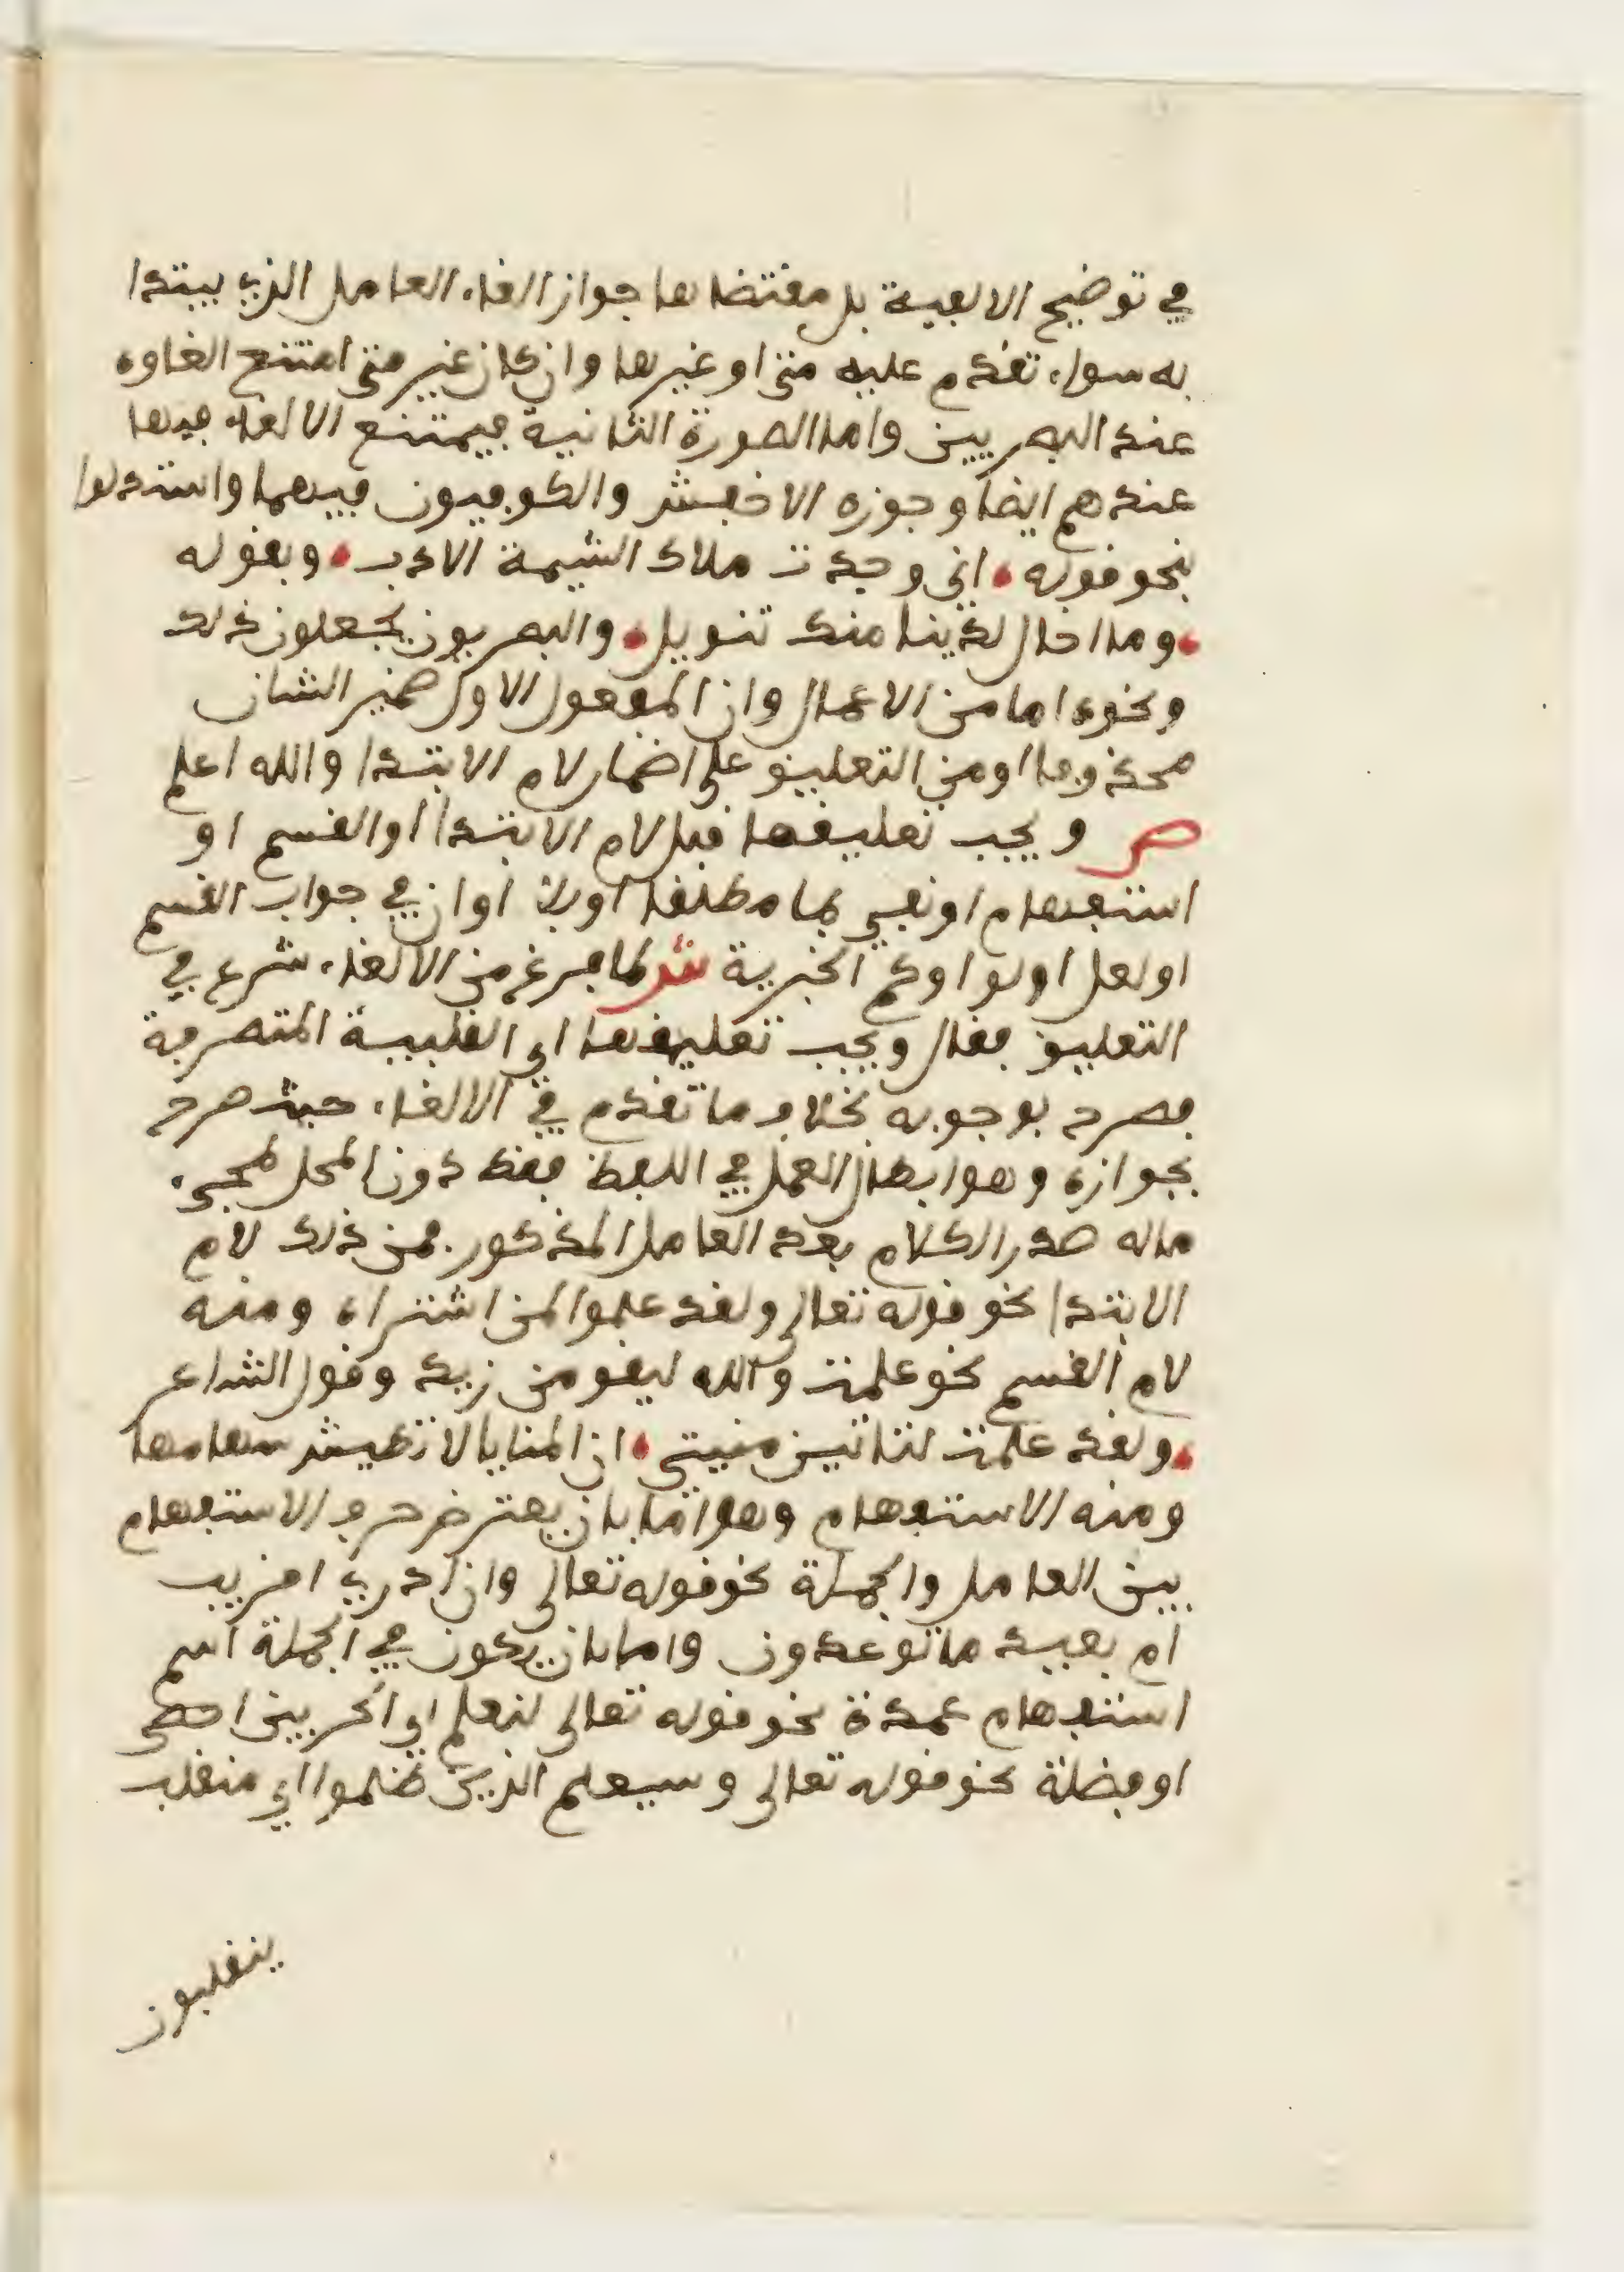 في توضيح الالفية بل مقتضاها جواز الغاء العامل الذي يبتدا
به سواء تقدم عليه متى او غيرها وان كان غير متى امتنع الغاوه
عند البصريين واما الصورة الثانية فيمتنع الالغاء فيها
عندهم ايضا وجوزه الاخفش والكوفيون فيهما واستدلوا
بنحو قوله • اني وجدت ملاك الشيمة الادب • وبقوله
• وما اخال لدينا منك تنويل • والبصريون يجعلون ذلك
ونحوه اما من الاعمال وان المفعول الاول ضمير الشان
محذوفا او من التعليق على اضمار لام الابتدا والله اعلم
ص ويجب تعليقها قبل لام الابتدا او القسم او
استفهام او نفي بما مطلقا او بلا او ان في جواب القسم
او لعل او لو او كم الخبرية ش لما فرغ من الالغاء شرع في
التعليق فقال ويجب تعليقها اي القلبية المتصرفة
فصرح بوجوبه بخلاف ما تقدم في الالغاء حيث صرح
بجوازه وهو ابطال العمل في اللفظ فقط دون المحل لمجيء
ماله صدر الكلام بعد العامل المذكور فمن ذلك لام
الابتدا نحو قوله تعالى ولقد علموا لمن اشتراه ومنه
لام القسم نحو علمت والله ليقومن زيد وقول الشاعر
• ولقد علمت لتاتين منيتي • ان المنايا لا تطيش سهامها
ومنه الاستفهام وهو اما بان يعترض حرف الاستفهام
بين العامل والجملة نحو قوله تعالى وان ادري اقريب
ام بعيد ما توعدون واما بان يكون في الجملة اسم
استفهام عمدة نحو قوله تعالى لنعلم اي الحزبين احصى
او فضلة نحو قوله تعالى وسيعلم الذين ظلموا اي منقلب
ينقلبون